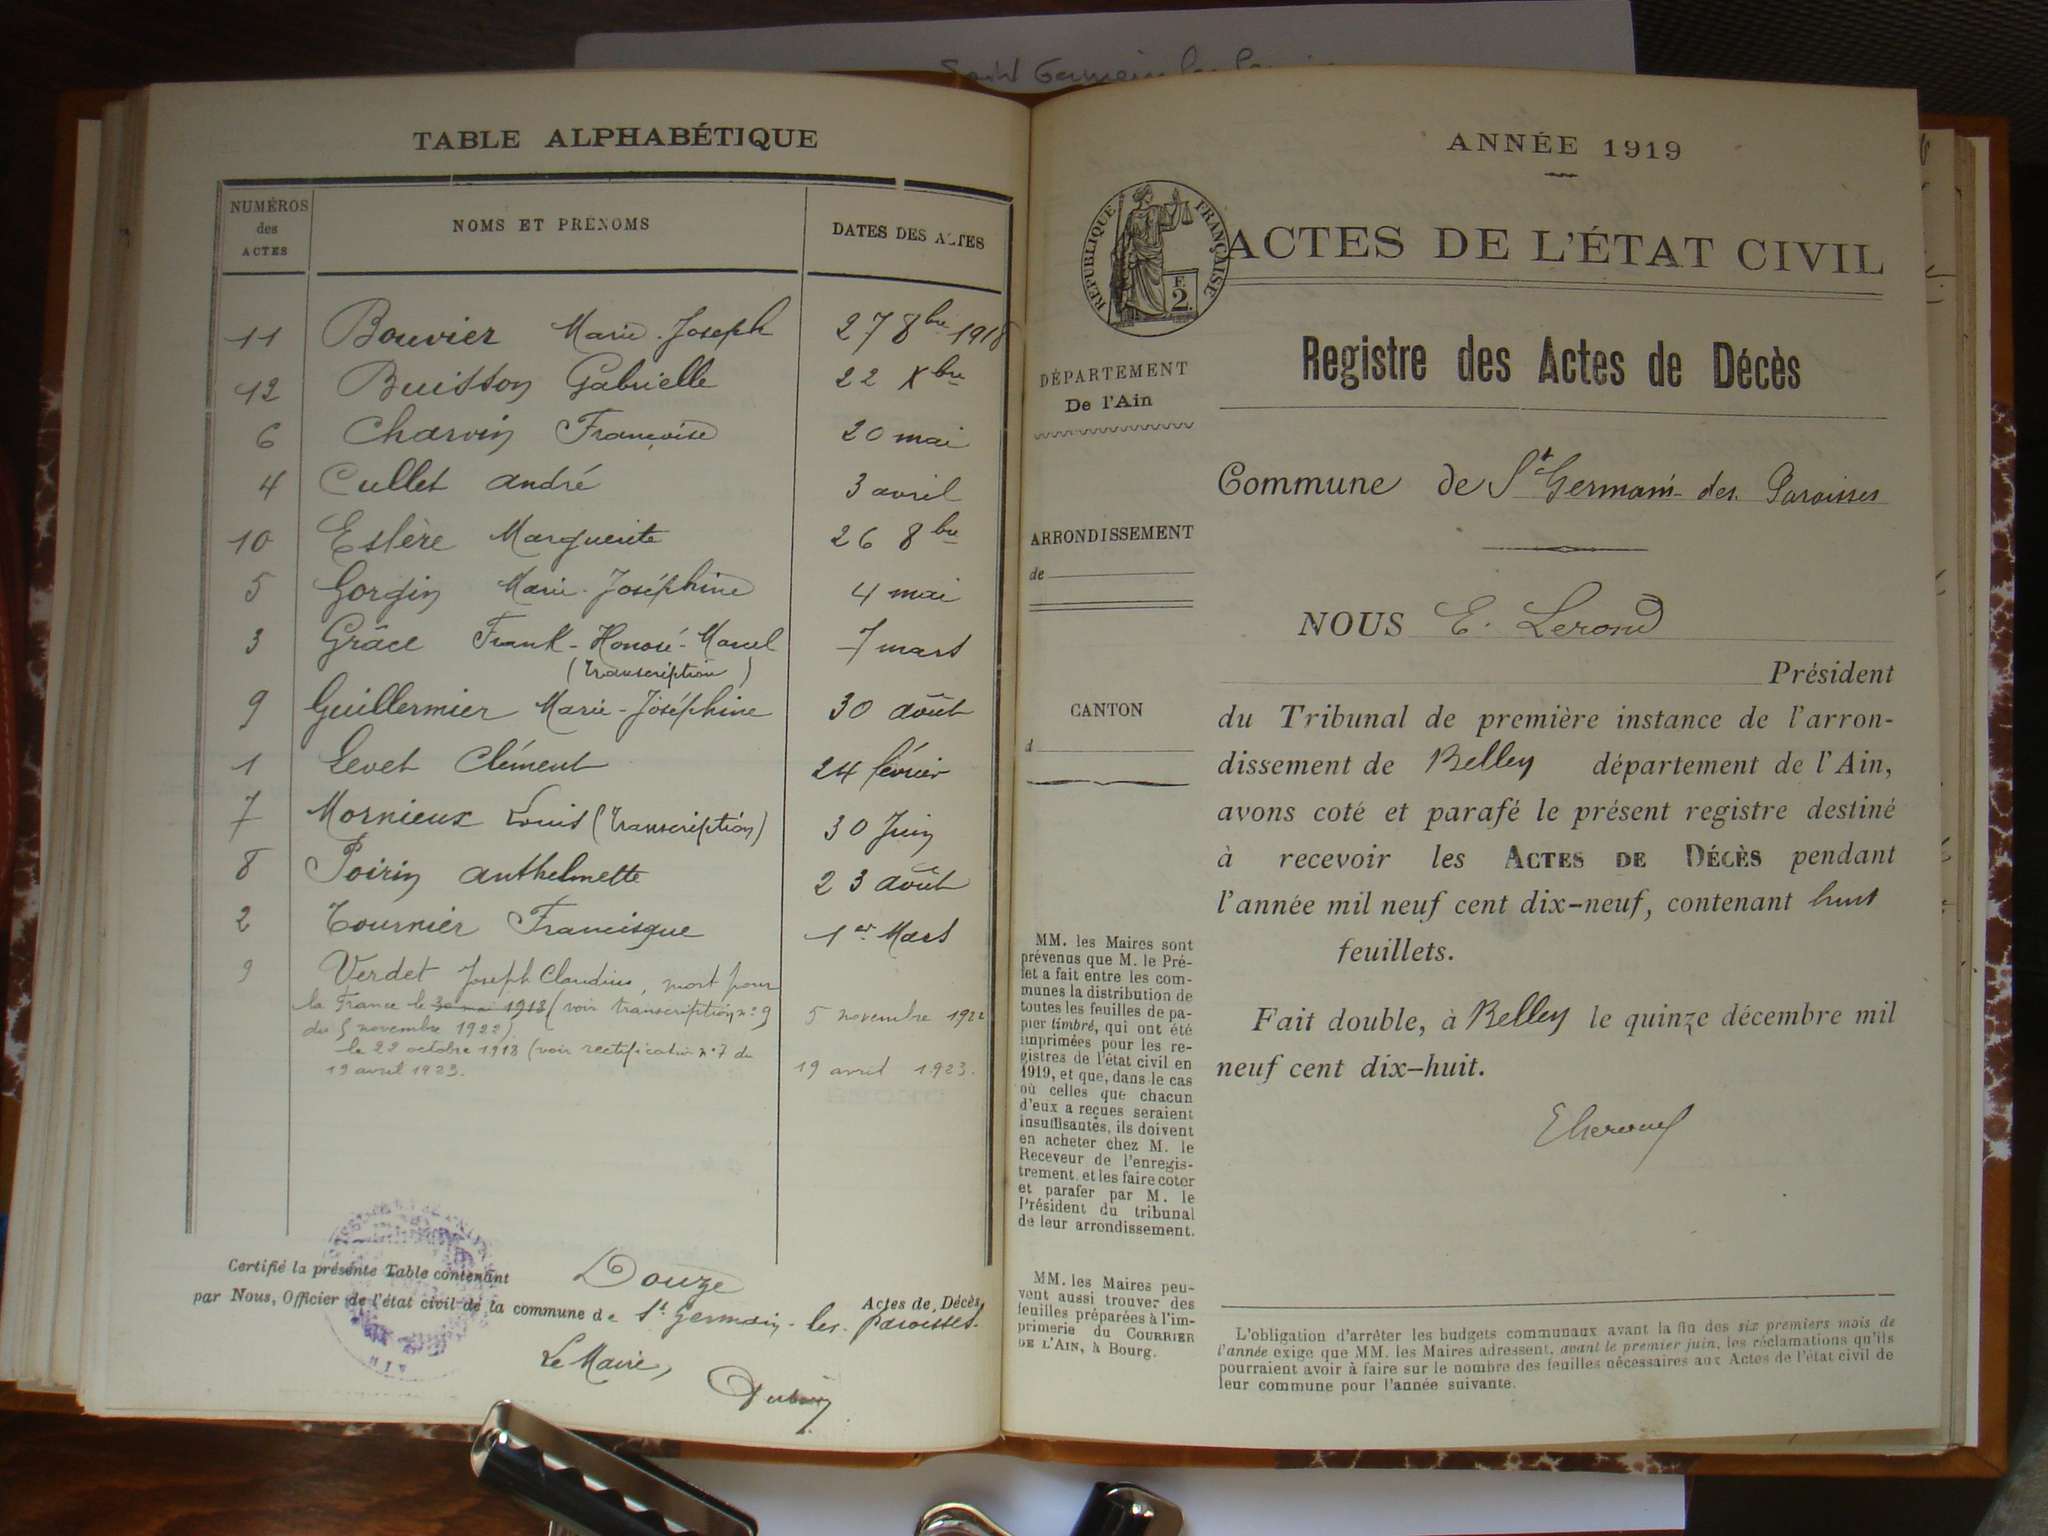 TABLE ALPHABÉTIQUE
NUMÉROS des ACTES
NOMS ET PRÉNOMS
DATES DES ACTES
11 Bouvier Marie-Joseph 27 8bre 1918
12 Buisson Gabrielle 22 Xbre
6 Charvin Françoise 20 mai
4 Cullet André 3 avril
10 Eslère Marguerite 26 8bre
5 Gorgin Marie-Joséphine 4 mai
3 Grâce Frank-Honoré-Marcel 7 mars
(transcription)
9 Guillermier Marie-Joséphine 30 août
1 Levet Clément 24 février
7 Mornieux Louis (transcription) 30 Juin
8 Poirin Anthelmette 23 août
2 Tournier Francisque 1er Mars
9 Verdet Joseph Claudius, mort pour
la France le 30 mai 1918 (voir transcription n° 9 5 novembre 1922
du 5 novembre 1922)
le 22 octobre 1918 (voir rectification n° 7 du
19 avril 1923. 19 avril 1923.
Certifié la présente Table contenant Douze Actes de Décès
par Nous, Officier de l'état civil de la commune de St Germain-les-Paroisses.
Le Maire,
ANNÉE 1919
RÉPUBLIQUE FRANÇAISE
F.
2.
ACTES DE L'ÉTAT CIVIL
Registre des Actes de Décès
DÉPARTEMENT
De l'Ain
ARRONDISSEMENT
de
CANTON
d
MM. les Maires sont
prévenus que M. le Pré-
fet a fait entre les com-
munes la distribution de
toutes les feuilles de pa-
pier timbré, qui ont été
imprimées pour les re-
gistres de l'état civil en
1919, et que, dans le cas
où celles que chacun
d'eux a reçues seraient
insuffisantes, ils doivent
en acheter chez M. le
Receveur de l'enregis-
trement et les faire coter
et parafer par M. le
Président du tribunal
de leur arrondissement.
MM. les Maires peu-
vent aussi trouver des
feuilles préparées à l'im-
primerie du COURRIER
DE L'AIN, à Bourg.
Commune de St Germain-des-Paroisses
NOUS E. Lerond
Président
du Tribunal de première instance de l'arron-
dissement de Belley département de l'Ain,
avons coté et parafé le présent registre destiné
à recevoir les ACTES DE DÉCÈS pendant
l'année mil neuf cent dix-neuf, contenant huit
feuillets.
Fait double, à Belley le quinze décembre mil
neuf cent dix-huit.
L'obligation d'arrêter les budgets communaux avant la fin des six premiers mois de
l'année exige que MM. les Maires adressent, avant le premier juin, les réclamations qu'ils
pourraient avoir à faire sur le nombre des feuilles nécessaires aux Actes de l'état civil de
leur commune pour l'année suivante.